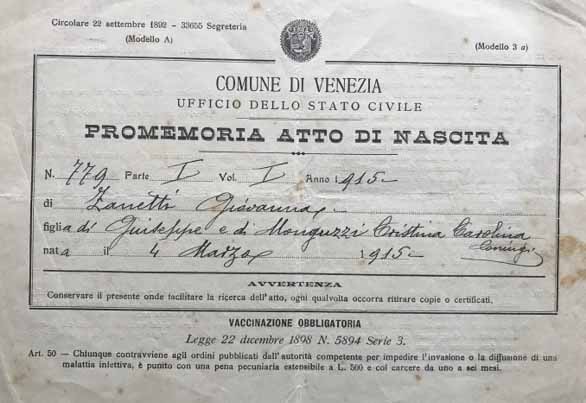 Circolare 22 settembre 1892 - 33655 Segreteria
(Modello A)
(Modello 3 a)
COMUNE DI VENEZIA
UFFICIO DELLO STATO CIVILE
PROMEMORIA ATTO DI NASCITA
N. 779 Parte I Vol. I Anno 1915
di Zanetti Giovanna
figlia di Giuseppe e di Monguzzi Cristina Carolina
Coniugi
nata il 4 Marzo 1915
AVVERTENZA
Conservare il presente onde facilitare la ricerca dell'atto, ogni qualvolta occorra ritirare copie o certificati.
VACCINAZIONE OBBLIGATORIA
Legge 22 dicembre 1898 N. 5894 Serie 3.
Art. 50 — Chiunque contravviene agli ordini pubblicati dall'autorità competente per impedire l'invasione o la diffusione di una
malattia infettiva, è punito con una pena pecuniaria estensibile a L. 500 e col carcere da uno a sei mesi.